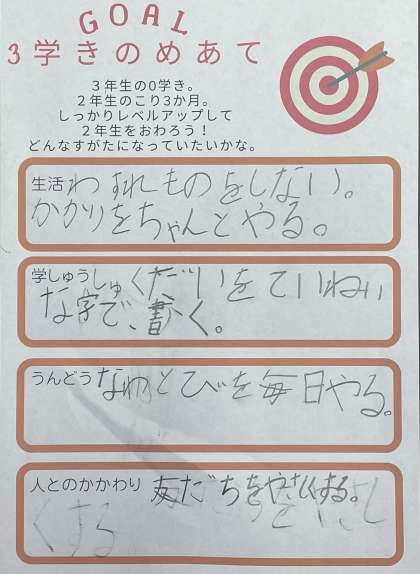 GOAL
3学きのめあて
3年生の0学き。
2年生のこり3か月。
しっかりレベルアップして
2年生をおわろう！
どんなすがたになっていたいかな。
生活 わすれものをしない。
かかりをちゃんとやる。
学しゅう しゅくだいをていねい
な字で、書く。
うんどう なわとびを毎日やる。
人とのかかわり 友だちをやさしくする。
くする。